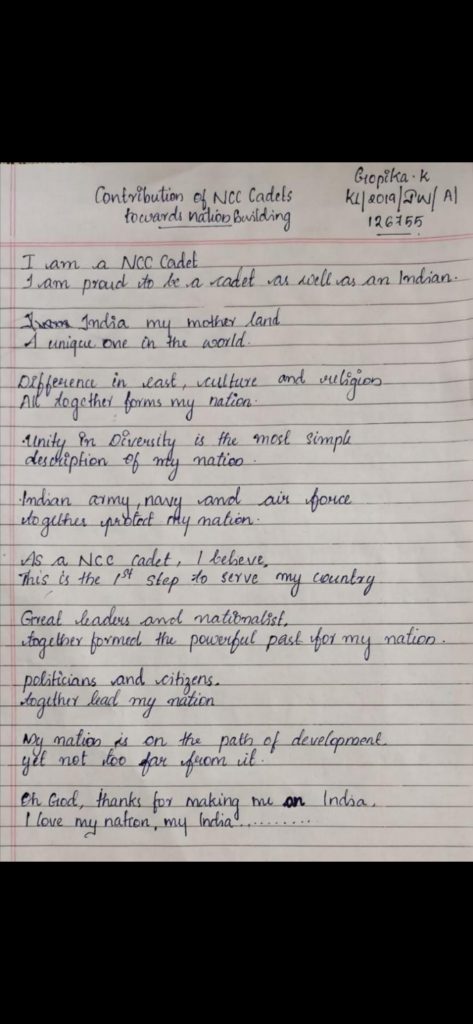 Gopika.K
Contribution of NCC Cadets
KL/2019/SW/A/
towards nation Building
126755
I am a NCC Cadet
I am proud to be a cadet as well as an Indian.
India my mother land
A unique one in the world.
Difference in cast, culture and religion
All together forms my nation.
Unity in Diversity is the most simple
description of my nation.
Indian army, navy and air force
together protect my nation.
As a NCC Cadet, I believe,
This is the 1st step to serve my country
Great leaders and nationalist,
together formed the powerful past for my nation.
politicians and citizens.
together lead my nation
My nation is on the path of development.
yet not too far from it.
Oh God, thanks for making me on India.
I love my nation, my India..........